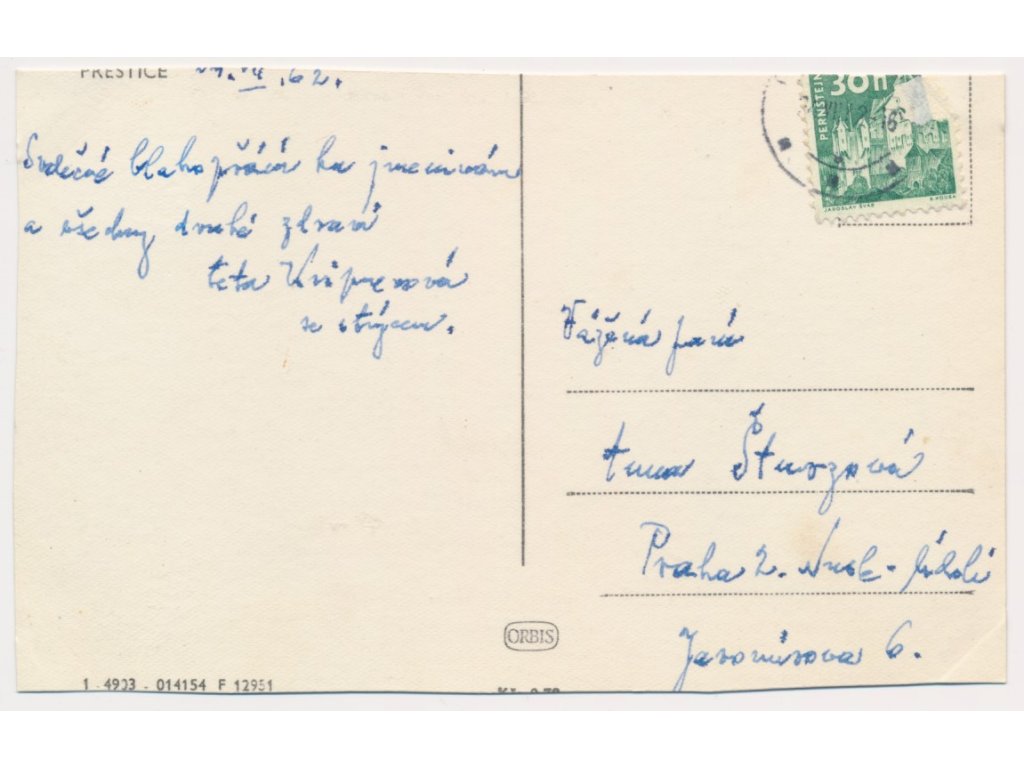 PŘEŠTICE VII. 62.
Srdečné blahopřání ku jmeninám
a všechny druhé zdraví
teta
se strýcem.
30 h
PERNŠTEJN
JAROSLAV ŠVÁB
Vážená paní
Anna Šturzová
Praha 2. Nusle - Údolí
Jaromírova 6.
ORBIS
1 - 4903 - 014154 F 12951